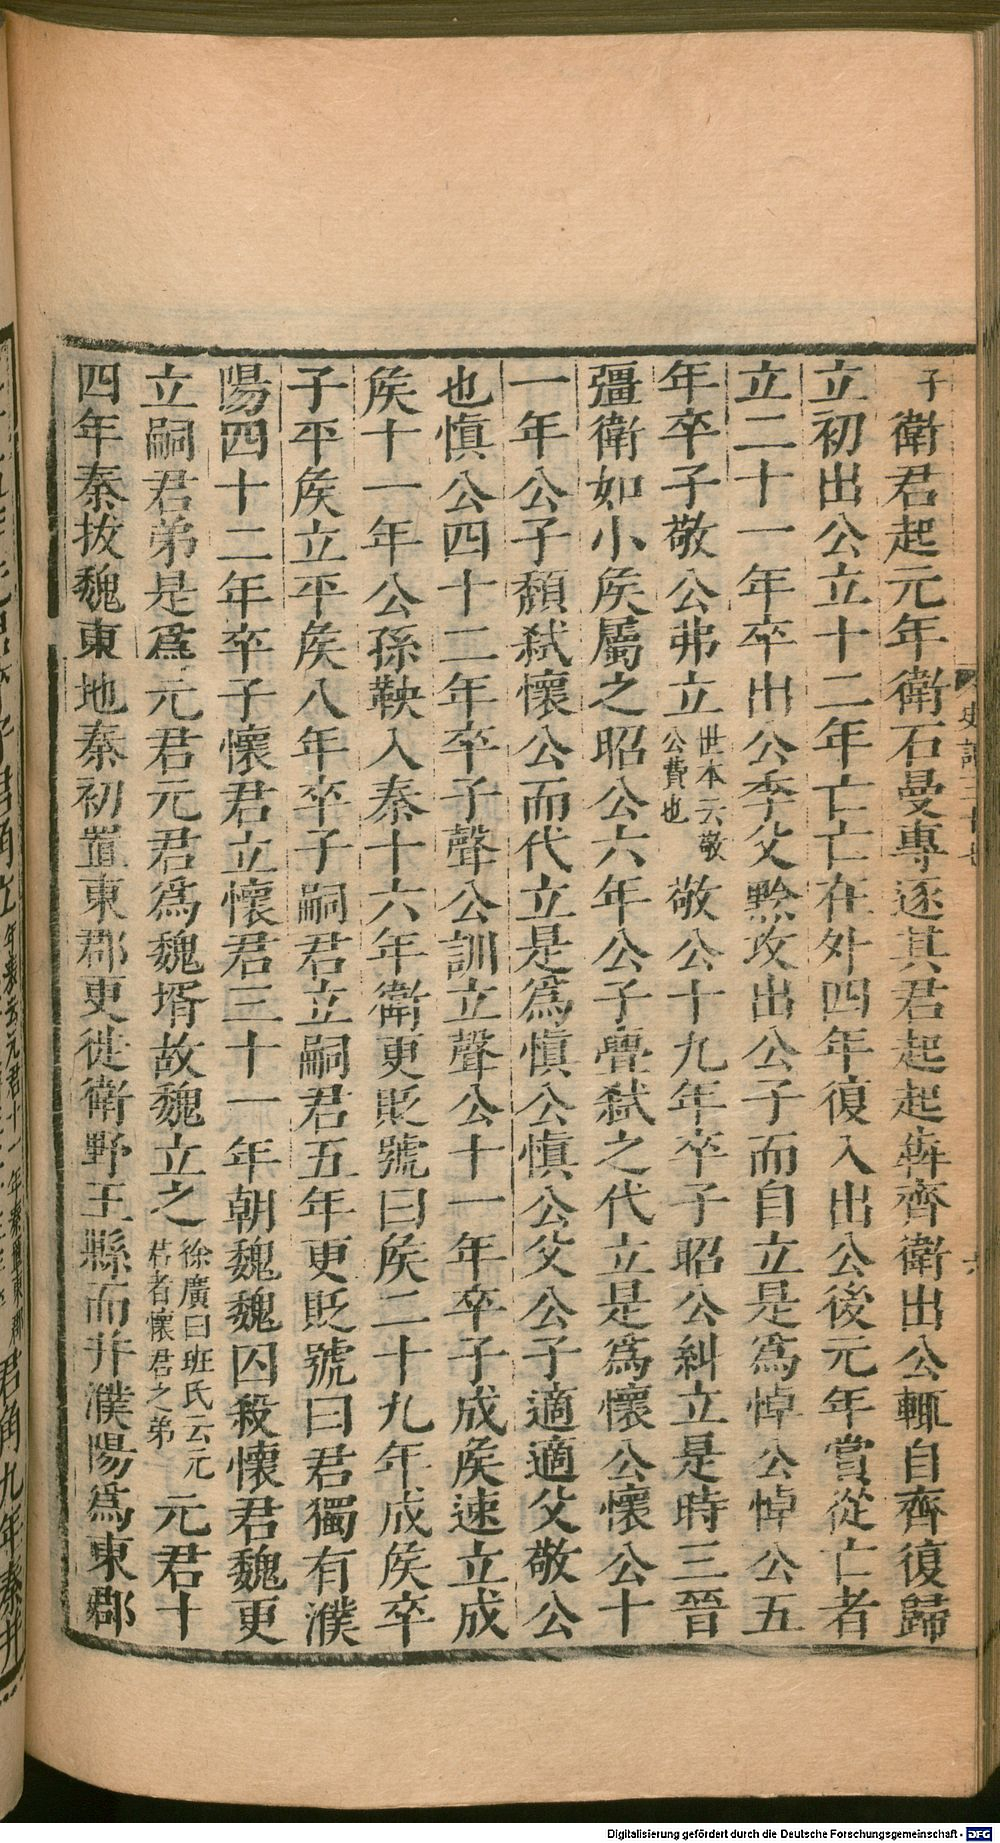 子衛君起元年衛石曼專逐其君起起犇齊衛出公輒自齊復歸
立初出公立十二年亡亡在外四年復入出公後元年賞從亡者
立二十一年卒出公季父黔攻出公子而自立是爲悼公悼公五
年卒子敬公弗立世本云敬公費也敬公十九年卒子昭公糾立是時三晉
彊衛如小矦屬之昭公六年公子亹弑之代立是爲懷公懷公十
一年公子頹弑懷公而代立是爲慎公慎公父公子適適父敬公
也慎公四十二年卒子聲公訓立聲公十一年卒子成矦速立成
矦十一年公孫鞅入秦十六年衛更貶號曰矦二十九年成矦卒
子平矦立平矦八年卒子嗣君立嗣君五年更貶號曰君獨有濮
陽四十二年卒子懷君立懷君三十一年朝魏魏囚殺懷君魏更
立嗣君弟是爲元君元君爲魏壻故魏立之徐廣曰班氏云元君者懷君之弟元君十
四年秦拔魏東地秦初置東郡更徙衛野王縣而并濮陽爲東郡
史記三十七
六
君角立年表云元君十一年秦置東郡
君角九年秦并
Digitalisierung gefördert durch die Deutsche Forschungsgemeinschaft - DFG